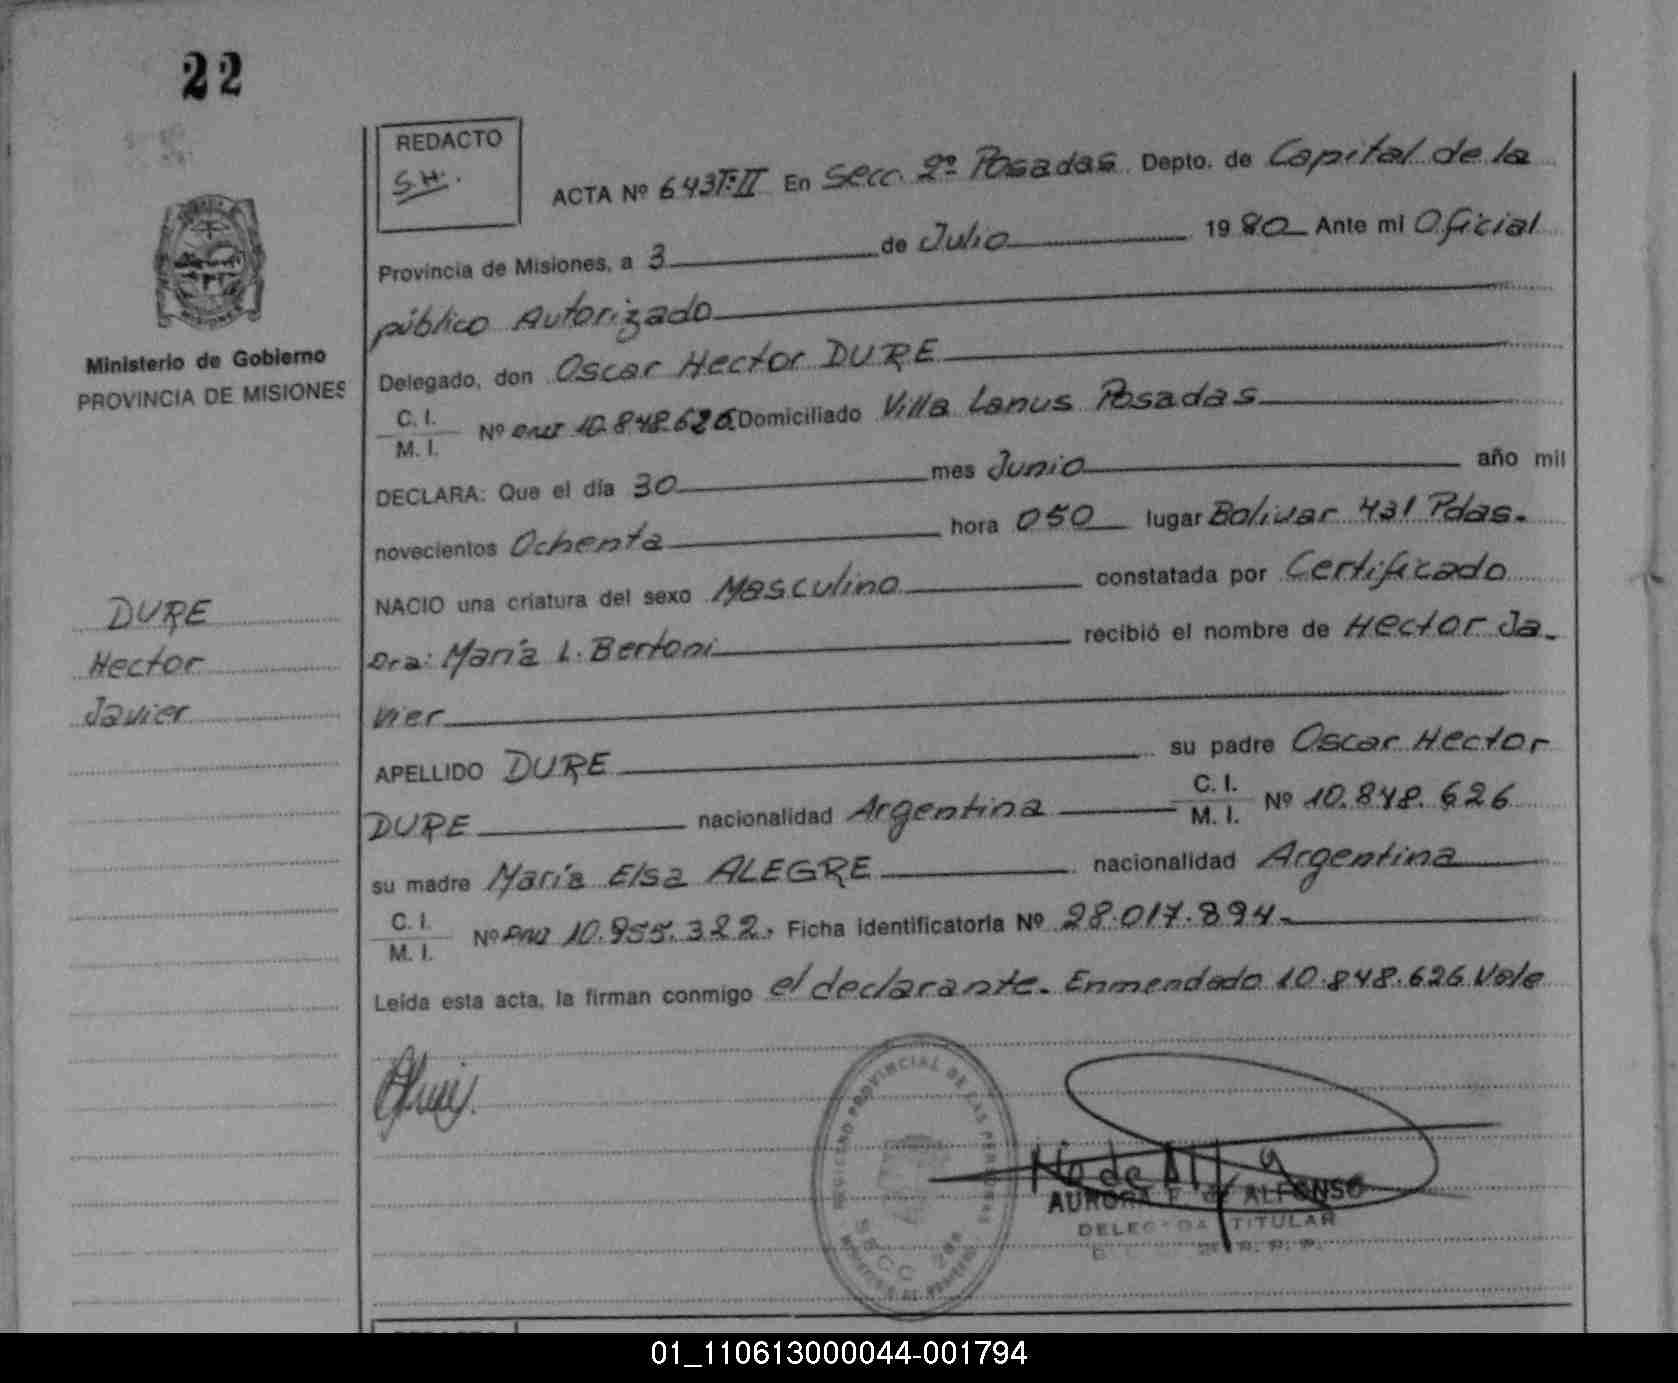 22
REDACTO
S.H.
ACTA Nº 643T:II En Secc. 2º Posadas Depto. de Capital de la
Provincia de Misiones, a 3 de Julio 1980 Ante mi Oficial
público Autorizado
Delegado, don Oscar Hector DURE
C. I.
M. I. Nº DNI 10.848.626 Domiciliado Villa Lanus Posadas
DECLARA: Que el día 30 mes Junio año mil
novecientos Ochenta hora 050 lugar Bolivar 431 Pdas.
NACIO una criatura del sexo Masculino constatada por Certificado
Dra: María L. Bertoni recibió el nombre de Hector Ja-
vier
APELLIDO DURE su padre Oscar Hector
DURE nacionalidad Argentina C. I. M. I. Nº 10.848.626
su madre María Elsa ALEGRE nacionalidad Argentina
C. I.
M. I. Nº DNI 10.955.322. Ficha identificatoria Nº 28.017.894.
Leída esta acta, la firman conmigo el declarante. Enmendado 10.848.626 Vale
Ministerio de Gobierno
PROVINCIA DE MISIONES
MISIONES
DURE
Hector
Javier
PROVINCIAL DE LAS PERSONAS
SECC 2da
AURORA F. de ALFONSO
DELEGADA TITULAR
REDACTO
01_110613000044-001794